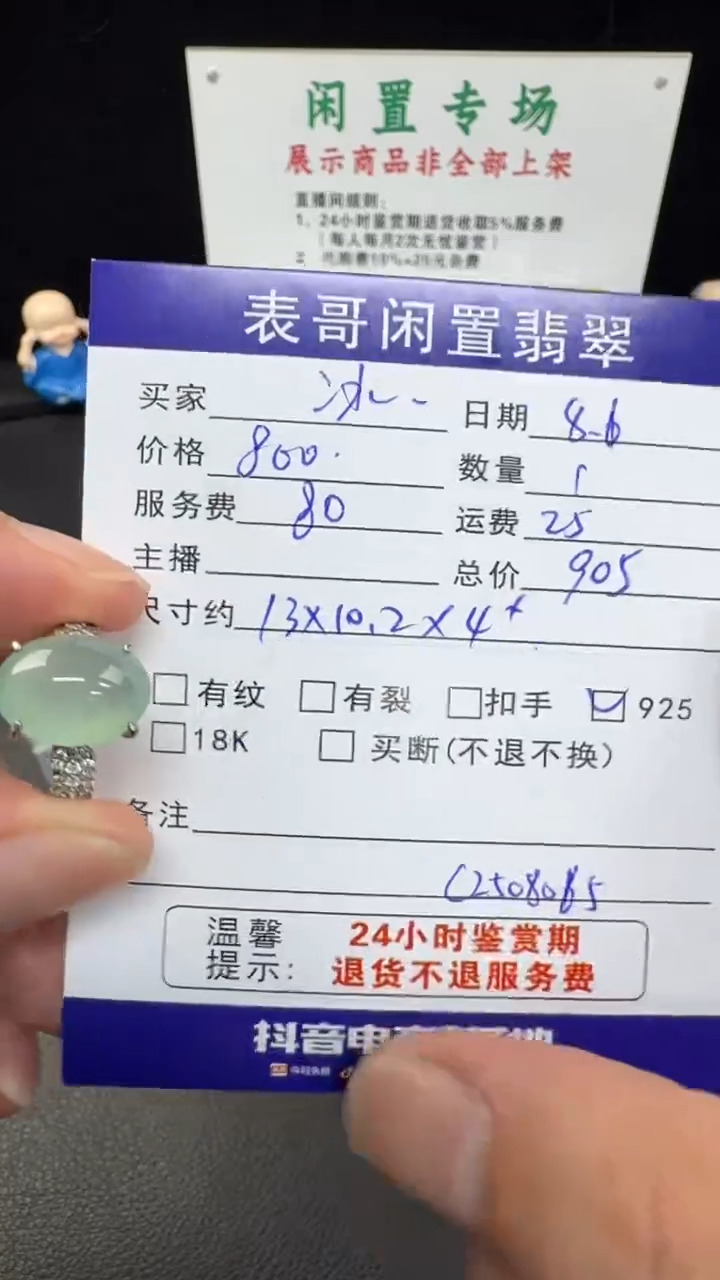 闲置专场
展示商品非全部上架
直播间细则：
1、24小时鉴赏期退货收取5%服务费
（每人每月2次无忧鉴赏）
表哥闲置翡翠
买家 冰一 日期 8.6
价格 800. 数量 1
服务费 80 运费 25
主播 总价 905
尺寸约 13×10.2×4+
有纹 有裂 扣手 925
18K 买断(不退不换)
备注
C2508085
温馨提示: 24小时鉴赏期
退货不退服务费
抖音电